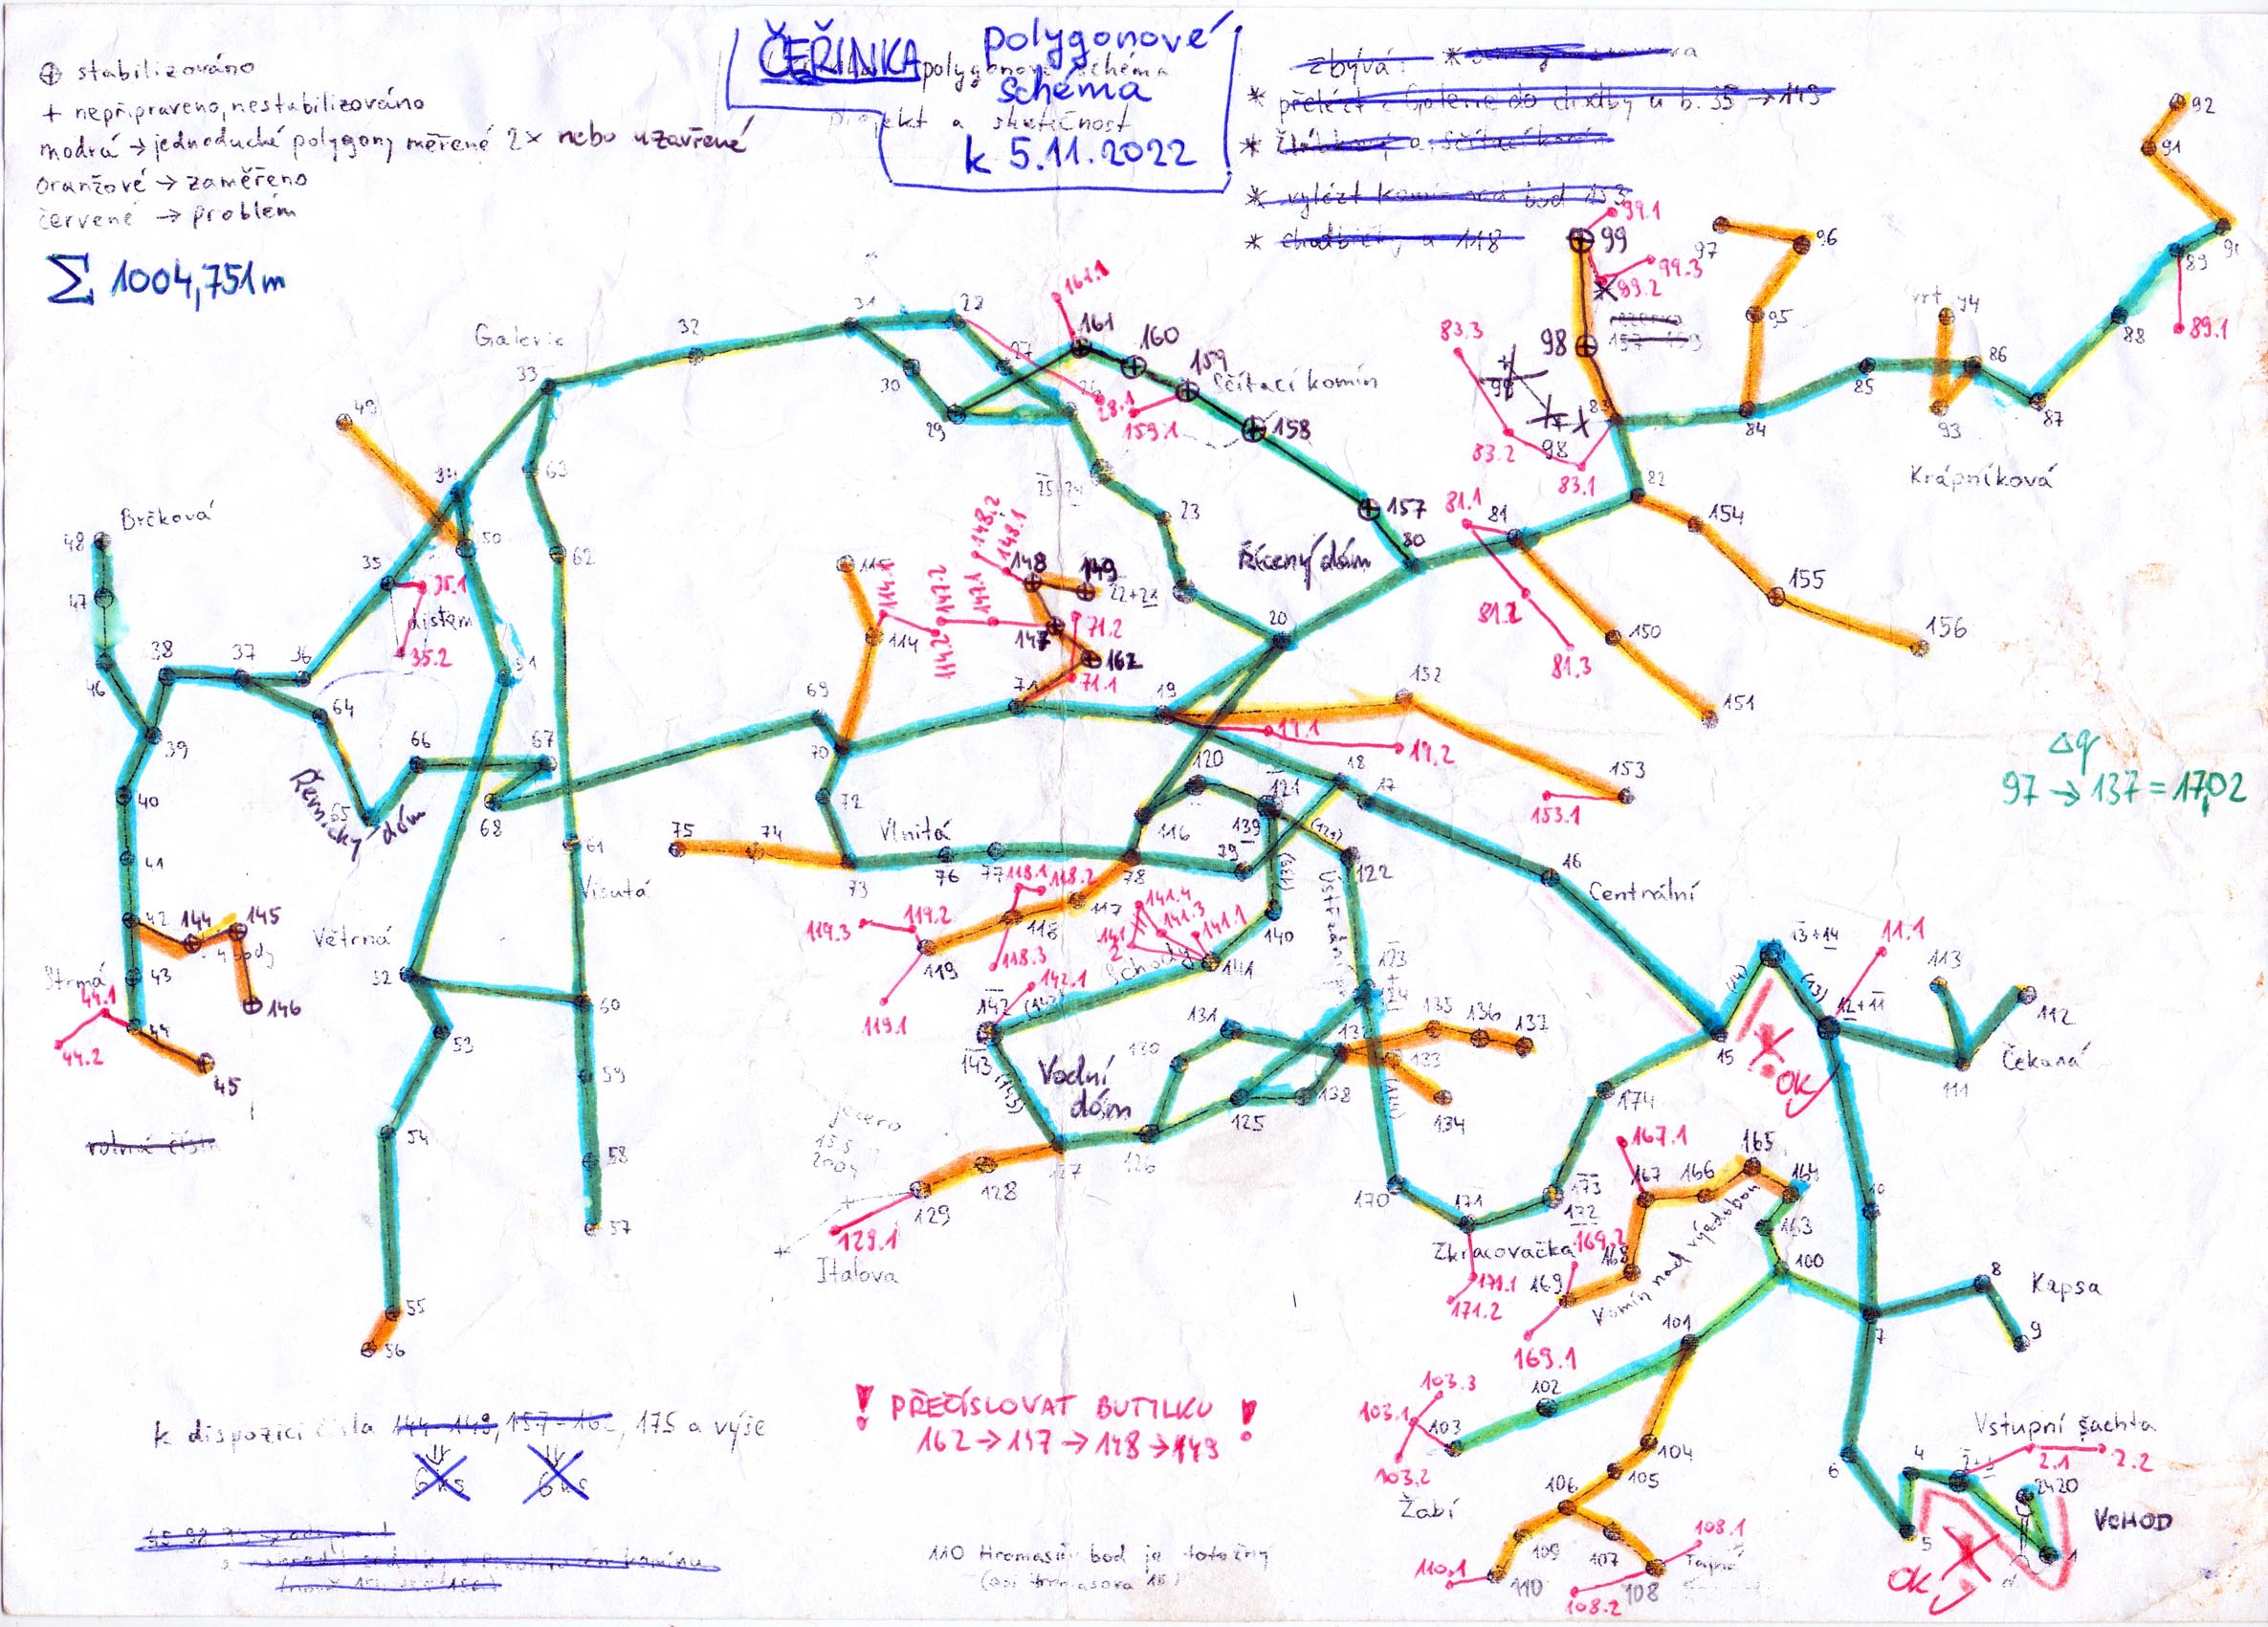 ⊕ stabilizováno
+ nepřipraveno, nestabilizováno
modrá → jednoduché polygony měřené 2x nebo uzavřené
oranžové → zaměřeno
červené → problém
Σ 1004,751m
ČEŘINKA polygonové
schéma
polygonové schéma
projekt a skutečnost
k 5.11.2022
zbývá:
* přelézt z Galerie do chodby u b. 35 → 149
* a Sčítací komín
* vylézt komín nad bod 153
* chodbičky u 118
92
91
99.1
99
97
96
99.3
99.2
89
161.1
31
28
vrt
94
95
98
88
89.1
161
160
159
83.3
Galerie
32
33
27
Sčítací komín
30
26
28.1
86
85
29
159.1
158
83
93
87
84
49
98
83.2
83.1
Krápníková
34
63
25
24
82
Brčková
148.2
148.1
23
157
81.1
81
154
48
50
62
80
35
Řícený dům
115
148
149
155
47
35.1
114.1
147.2
147.1
22+21
distem
71.2
81.2
20
150
156
114
114.2
147
38
37
36
35.2
162
81.3
46
51
71.1
152
64
69
71
19
151
39
19.1
66
67
70
19.2
Δg
97 → 137 = 17,02
120
18
153
Řemnický dóm
65
68
72
121
17
153.1
40
75
74
Vlnitá
116
139
(121)
61
79
122
16
41
73
76
77
78
(139)
Visutá
118.1
118.2
Centrální
42
144
145
117
141.4
141.3
141.1
119.3
119.2
118
140
Větrná
119
13+14
11.1
Schody
141
123
124
113
Strmá
43
52
118.3
142.1
146
44.1
142
(14)
(13)
12+11
112
60
119.1
131
135
136
137
44
53
132
15
Čekaná
44.2
143
130
133
111
OK
45
59
Vodní
dóm
138
174
jezero
125
134
54
127
126
167.1
165
58
128
167
166
164
170
171
173
172
10
129
163
57
129.1
Zkracovačka
169.2
168
Komín nad výsedbou
100
8
Kapsa
Italova
171.1
169
171.2
55
101
7
9
169.1
56
103.3
102
! PŘEČÍSLOVAT BUTILKU !
162 → 147 → 148 → 149
103.1
103
Vstupní šachta
k dispozici čísla 144-149, 157-162, 175 a výše
104
6
4
2.1
2.2
6ks
6ks
103.2
105
2420
106
VCHOD
Žabí
5
1
108.1
110 Hromasův bod je totožný
109
107
OK
110.1
110
108
108.2